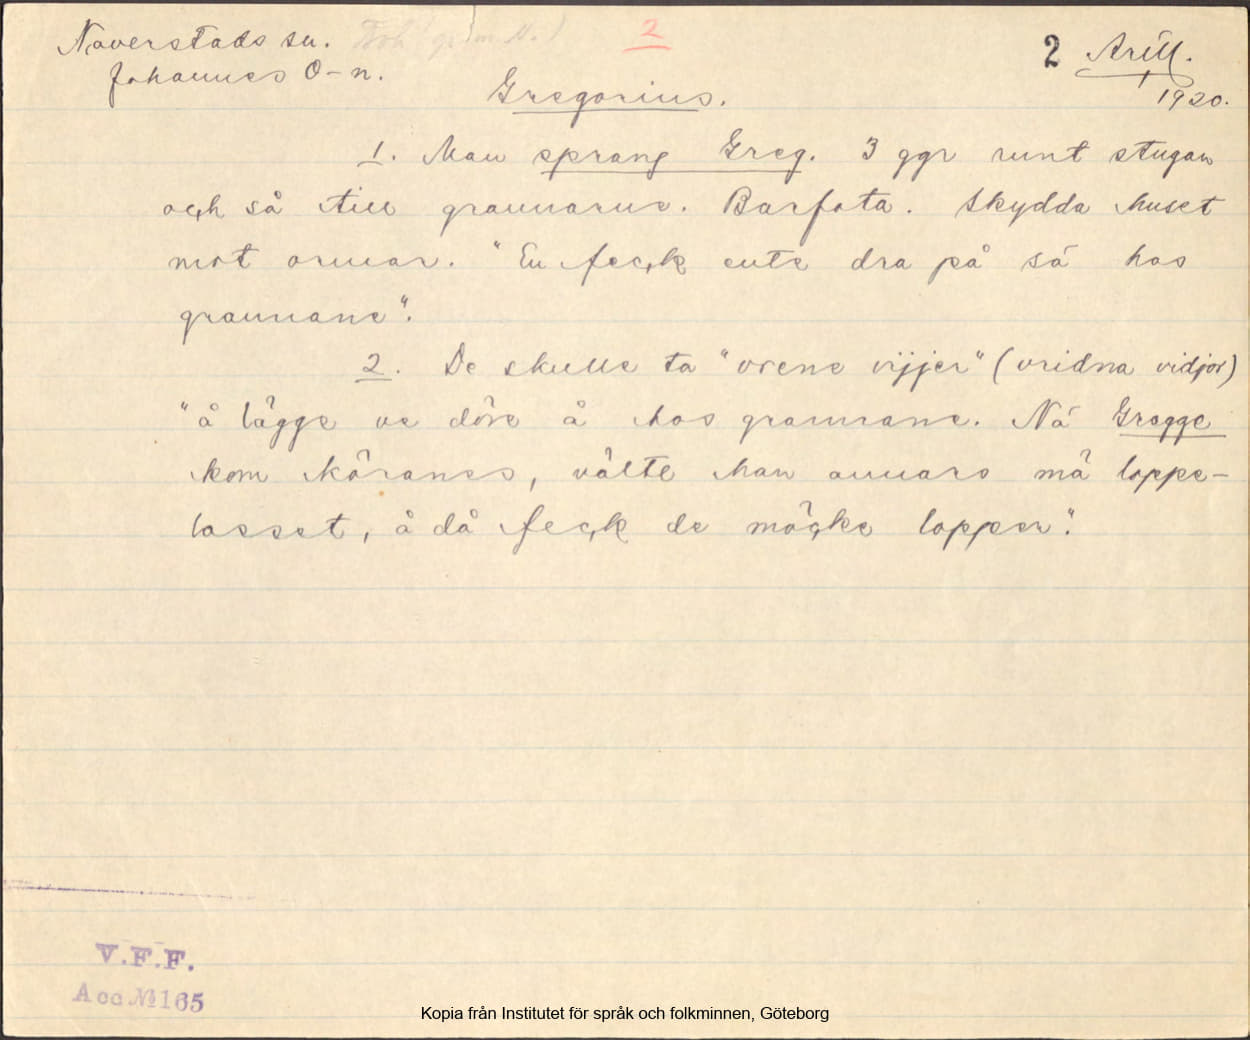 Naverstads sn. 2 2 Arill.
Johannes O-n. 1920.
Gregorius.
1. Man sprang Greg. 3 ggr runt stugan
och så till grannarne. Barfota. Skydda huset
mot ormar. "En feck ente dra på sá hos
grannane".
2. De skulle ta "vrene vijjer" (vridna vidjor)
"å lägge ve döre å hos grannane. Ná Gregge
kom köranes, välte han annars mä loppe-
lasset, å då feck de möcke lopper".
V.F.F.
Acc.№165
Kopia från Institutet för språk och folkminnen, Göteborg